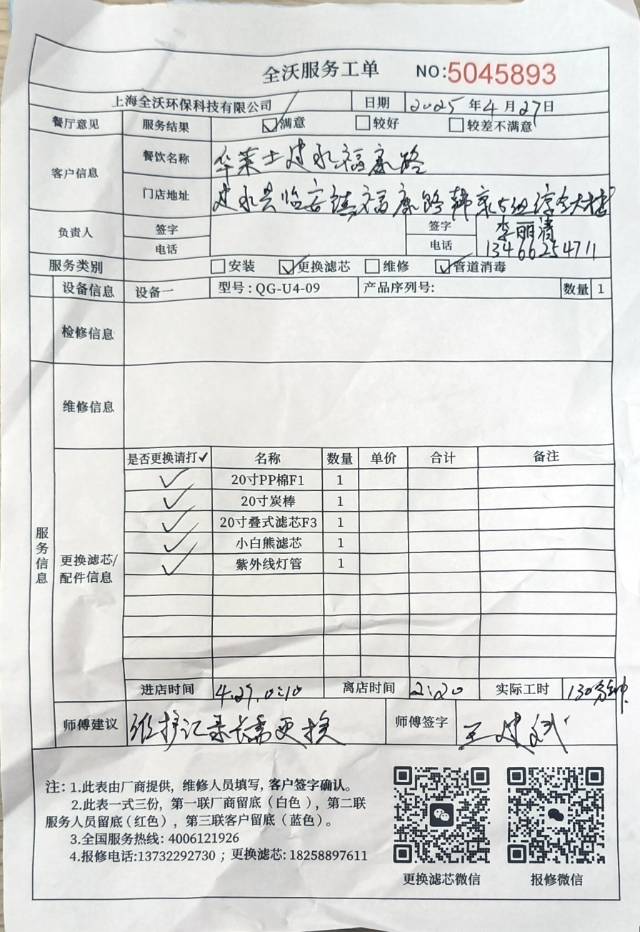 全沃服务工单 NO:5045893
上海全沃环保科技有限公司 日期 2025年4月27日
餐厅意见 服务结果 ☑满意 □较好 □较差不满意
客户信息 餐饮名称 华莱士建水福康路
门店地址 建水县临安镇福康路韩家5组综合大楼
负责人 签字 签字 李丽清
电话 电话 13466254711
服务类别 □安装 ☑更换滤芯 □维修 ☑管道消毒
设备信息 设备一 型号:QG-U4-09 产品序列号: 数量 1
检修信息
维修信息
服务信息
更换滤芯/配件信息
是否更换请打✓ 名称 数量 单价 合计 备注
✓ 20寸PP棉F1 1
✓ 20寸炭棒 1
✓ 20寸叠式滤芯F3 1
✓ 小白熊滤芯 1
✓ 紫外线灯管 1
进店时间 4.27, 0:10 离店时间 2:20 实际工时 130分钟
师傅建议 维护记录长需更换 师傅签字 王建斌
注: 1.此表由厂商提供，维修人员填写，客户签字确认。
2.此表一式三份，第一联厂商留底(白色)，第二联
服务人员留底(红色)，第三联客户留底(蓝色)。
3.全国服务热线: 4006121926
4.报修电话:13732292730；更换滤芯: 18258897611
更换滤芯微信 报修微信